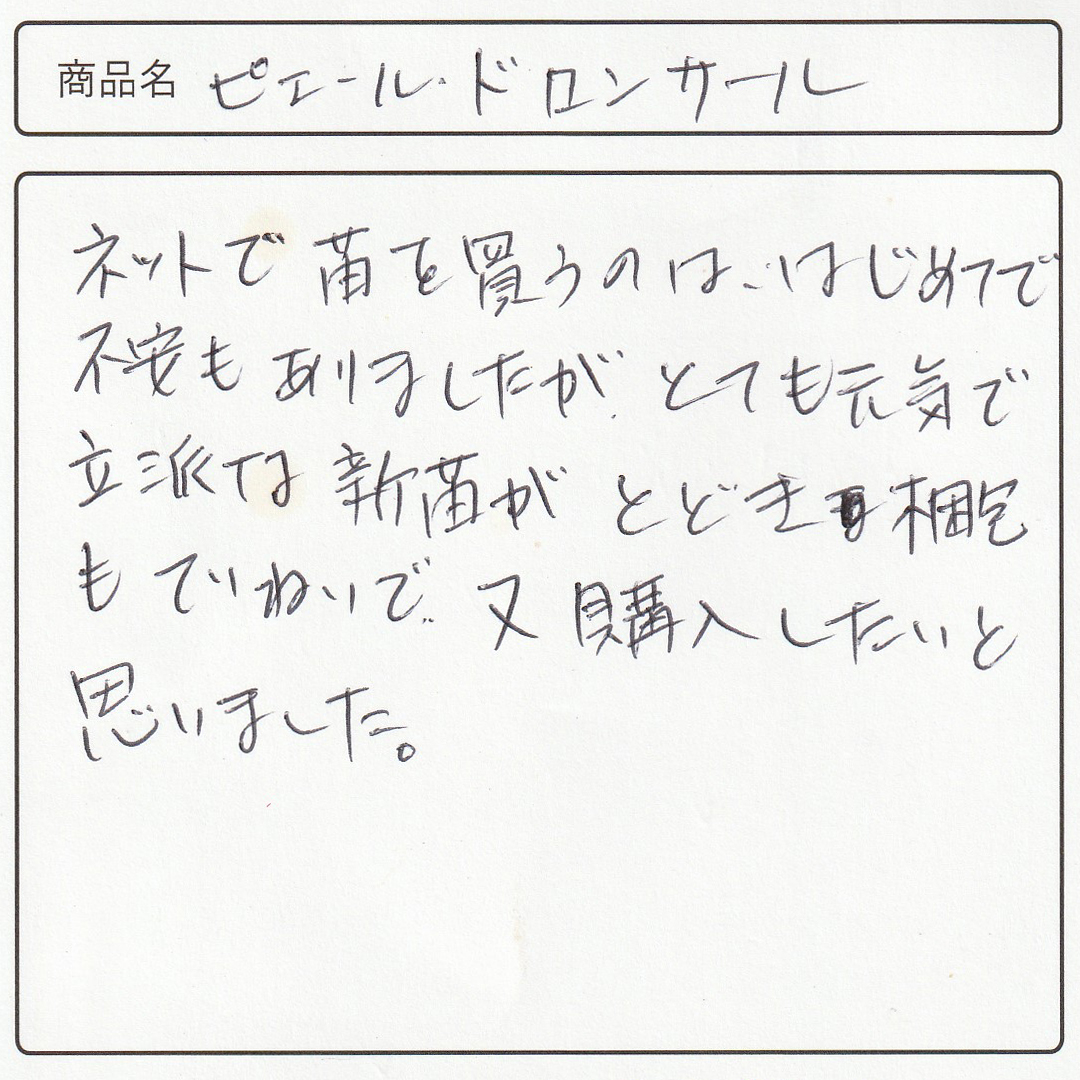 商品名 ピエール・ドロンサール
ネットで苗を買うのは、はじめてで
不安もありましたが、とても元気で
立派な新苗がとどき梱包
もていねいで、又購入したいと
思いました。